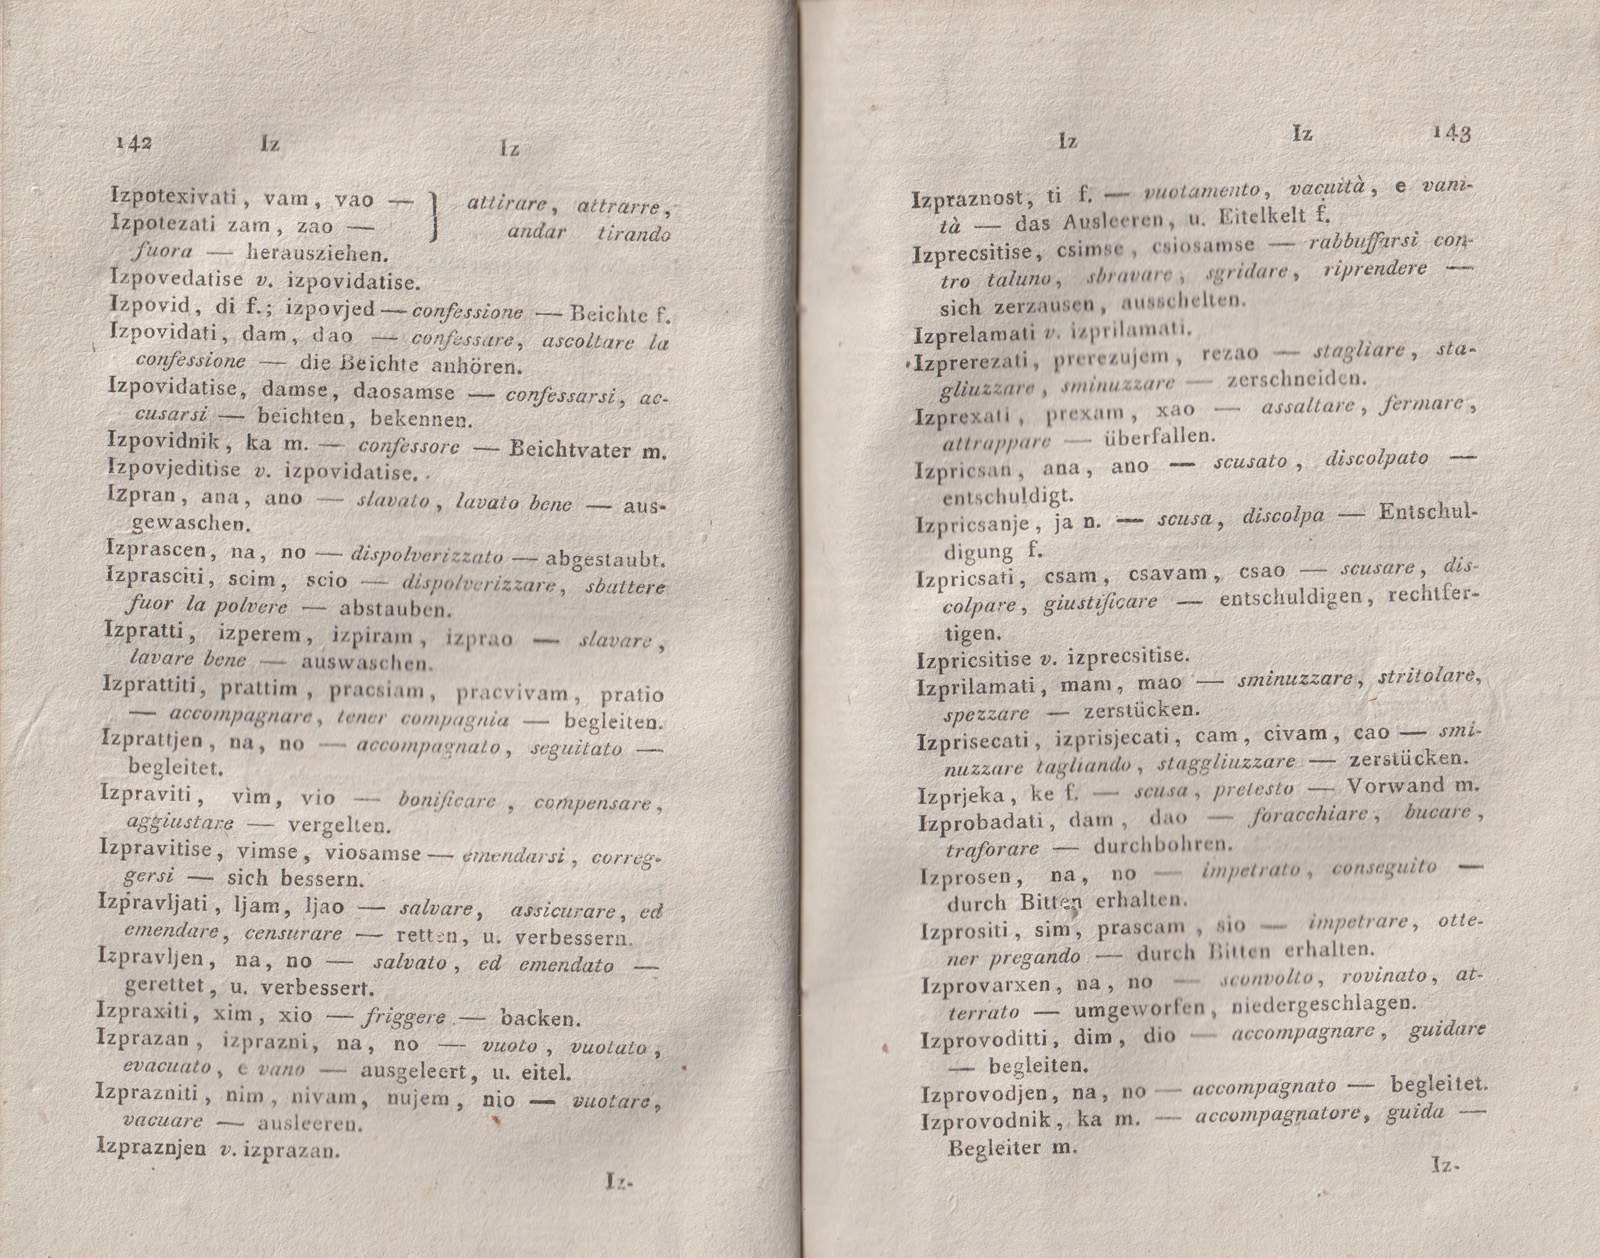 142 Iz Iz
Izpotexivati, vam, vao — } attirare, attrarre,
Izpotezati zam, zao — } andar tirando
fuora — herausziehen.
Izpovedatise v. izpovidatise.
Izpovid, di f.; izpovjed — confessione — Beichte f.
Izpovidati, dam, dao — confessare, ascoltare la
confessione — die Beichte anhören.
Izpovidatise, damse, daosamse — confessarsi, ac-
cusarsi — beichten, bekennen.
Izpovidnik, ka m. — confessore — Beichtvater m.
Izpovjeditise v. izpovidatise.
Izpran, ana, ano — slavato, lavato bene — aus-
gewaschen.
Izprascen, na, no — dispolverizzato — abgestaubt.
Izprasciti, scim, scio — dispolverizzare, sbattere
fuor la polvere — abstauben.
Izpratti, izperem, izpiram, izprao — slavare,
lavare bene — auswaschen.
Izprattiti, prattim, pracsiam, pracvivam, pratio
— accompagnare, tener compagnia — begleiten.
Izprattjen, na, no — accompagnato, seguitato —
begleitet.
Izpraviti, vim, vio — bonificare, compensare,
aggiustare — vergelten.
Izpravitise, vimse, viosamse — emendarsi, correg-
gersi — sich bessern.
Izpravljati, ljam, ljao — salvare, assicurare, ed
emendare, censurare — retten, u. verbessern.
Izpravljen, na, no — salvato, ed emendato —
gerettet, u. verbessert.
Izpraxiti, xim, xio — friggere — backen.
Izprazan, izprazni, na, no — vuoto, vuotato,
evacuato, e vano — ausgeleert, u. eitel.
Izprazniti, nim, nivam, nujem, nio — vuotare,
vacuare — ausleeren.
Izpraznjen v. izprazan.
Iz-
Iz Iz 143
Izpraznost, ti f. — vuotamento, vacuità, e vani-
tà — das Ausleeren, u. Eitelkelt f.
Izprecsitise, csimse, csiosamse — rabbuffarsi con-
tro taluno, sbravare, sgridare, riprendere —
sich zerzausen, ausschelten.
Izprelamati v. izprilamati.
Izprerezati, prerezujem, rezao — stagliare, sta-
gliuzzare, sminuzzare — zerschneiden.
Izprexati, prexam, xao — assaltare, fermare,
attrappare — überfallen.
Izpricsan, ana, ano — scusato, discolpato —
entschuldigt.
Izpricsanje, ja n. — scusa, discolpa — Entschul-
digung f.
Izpricsati, csam, csavam, csao — scusare, dis-
colpare, giustificare — entschuldigen, rechtfer-
tigen.
Izpricsitise v. izprecsitise.
Izprilamati, mam, mao — sminuzzare, stritolare,
spezzare — zerstücken.
Izprisecati, izprisjecati, cam, civam, cao — smi-
nuzzare tagliando, staggliuzzare — zerstücken.
Izprjeka, ke f. — scusa, pretesto — Vorwand m.
Izprobadati, dam, dao — foracchiare, bucare,
traforare — durchbohren.
Izprosen, na, no — impetrato, conseguito —
durch Bitten erhalten.
Izprositi, sim, prascam, sio — impetrare, otte-
ner pregando — durch Bitten erhalten.
Izprovarxen, na, no — sconvolto, rovinato, at-
terrato — umgeworfen, niedergeschlagen.
Izprovoditti, dim, dio — accompagnare, guidare
— begleiten.
Izprovodjen, na, no — accompagnato — begleitet.
Izprovodnik, ka m. — accompagnatore, guida —
Begleiter m.
Iz-